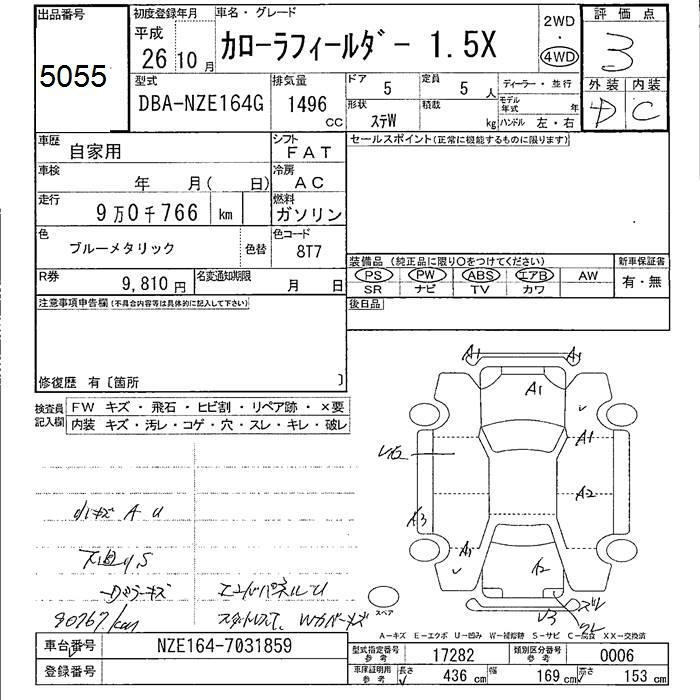 出品番号
5055
初度登録年月
平成
26年10月
車名・グレード
カローラフィールダー 1.5X
2WD
・
4WD
評価点
3
外装 内装
D C
型式
DBA-NZE164G
排気量
1496
CC
ドア
5
定員
5人
形状
ステW
積載
kg
ディーラー・並行
モデル年式 年
ハンドル 左・右
車歴
自家用
シフト
FAT
車検
年 月( 日)
冷房
AC
走行
9万0千766 km
燃料
ガソリン
色
ブルーメタリック
色替
色コード
8T7
R券
9,810円
名変通知期限
月 日
セールスポイント(正常に機能するものに限ります)
装備品 (純正品に限り〇をつけてください)
新車保証書
PS PW ABS エアB AW
有・無
SR ナビ TV カワ
後日品
注意事項申告欄(不具合内容等は具体的に記入して下さい)
修復歴 有〔箇所 〕
検査員記入欄
FW キズ・飛石・ヒビ割・リペア跡・×要
内装 キズ・汚レ・コゲ・穴・スレ・キレ・破レ
A1 A1
A1
A1
A2
A3
A1
A2
V3
小キズ A U
下廻り S
90767km
スペア
A-キズ E-エクボ U-凹み W-補修跡 S-サビ C-腐食 XX-交換済
車台番号
NZE164-7031859
登録番号
型式指定番号
参考
17282
類別区分番号
参考
0006
車庫証明用
参考
長さ
436 cm
幅
169 cm
高さ
153 cm